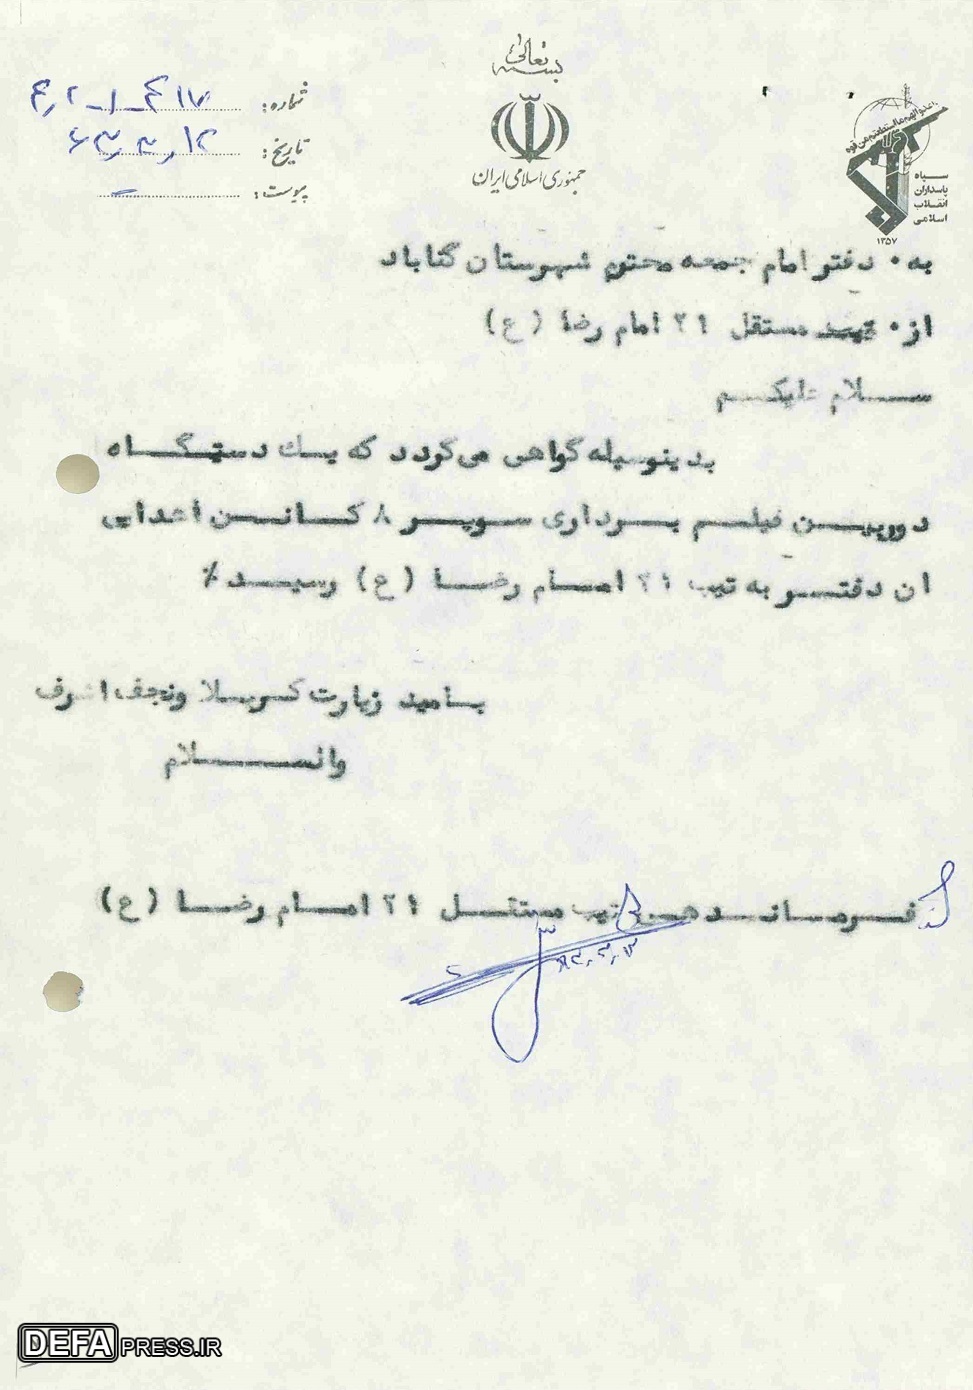 بسمه تعالی
جمهوری اسلامی ایران
سپاه
پاسداران
انقلاب
اسلامی
۱۳۵۷
شماره:
تاریخ:
پیوست:
به۰ دفتر امام جمعه محترم شهرستان گناباد
از۰ تیپ مستقل ۲۱ امام رضا (ع)
سلام علیکم
بدینوسیله گواهی میگردد که یک دستگاه
دوربین فیلم برداری سوپر ۸ کانن اهدایی
ان دفتر به تیپ ۲۱ امام رضا (ع) رسید٪
بامید زیارت کربلا ونجف اشرف
والسلام
فرمانده تیپ مستقل ۲۱ امام رضا (ع)
DEFA PRESS.IR